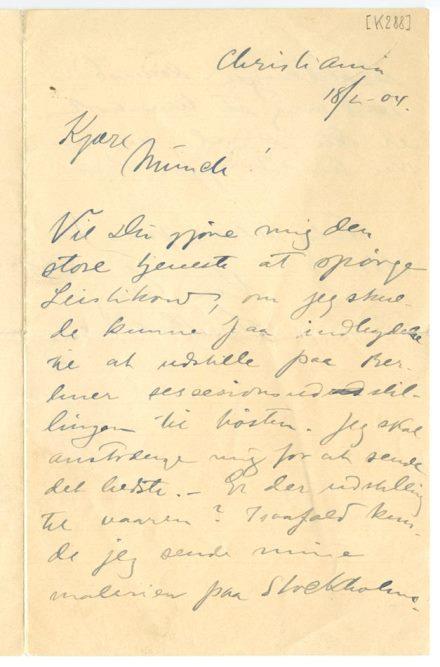 [K288]
Christiania
18/2-04.
Kjære
Munch!
Vil Du gjöre mig den
store tjeneste at spörge
Leistikow, om jeg skul-
de kunne faa indbydelse
til at udstille paa Ber-
liner secessionsudstil-
lingen til hösten. Jeg skal
anstrænge mig for at sende
det bedste. – Er der udstilling
til vaaren? Isaafald kun-
de jeg sende mine
malerier paa Stockholms-